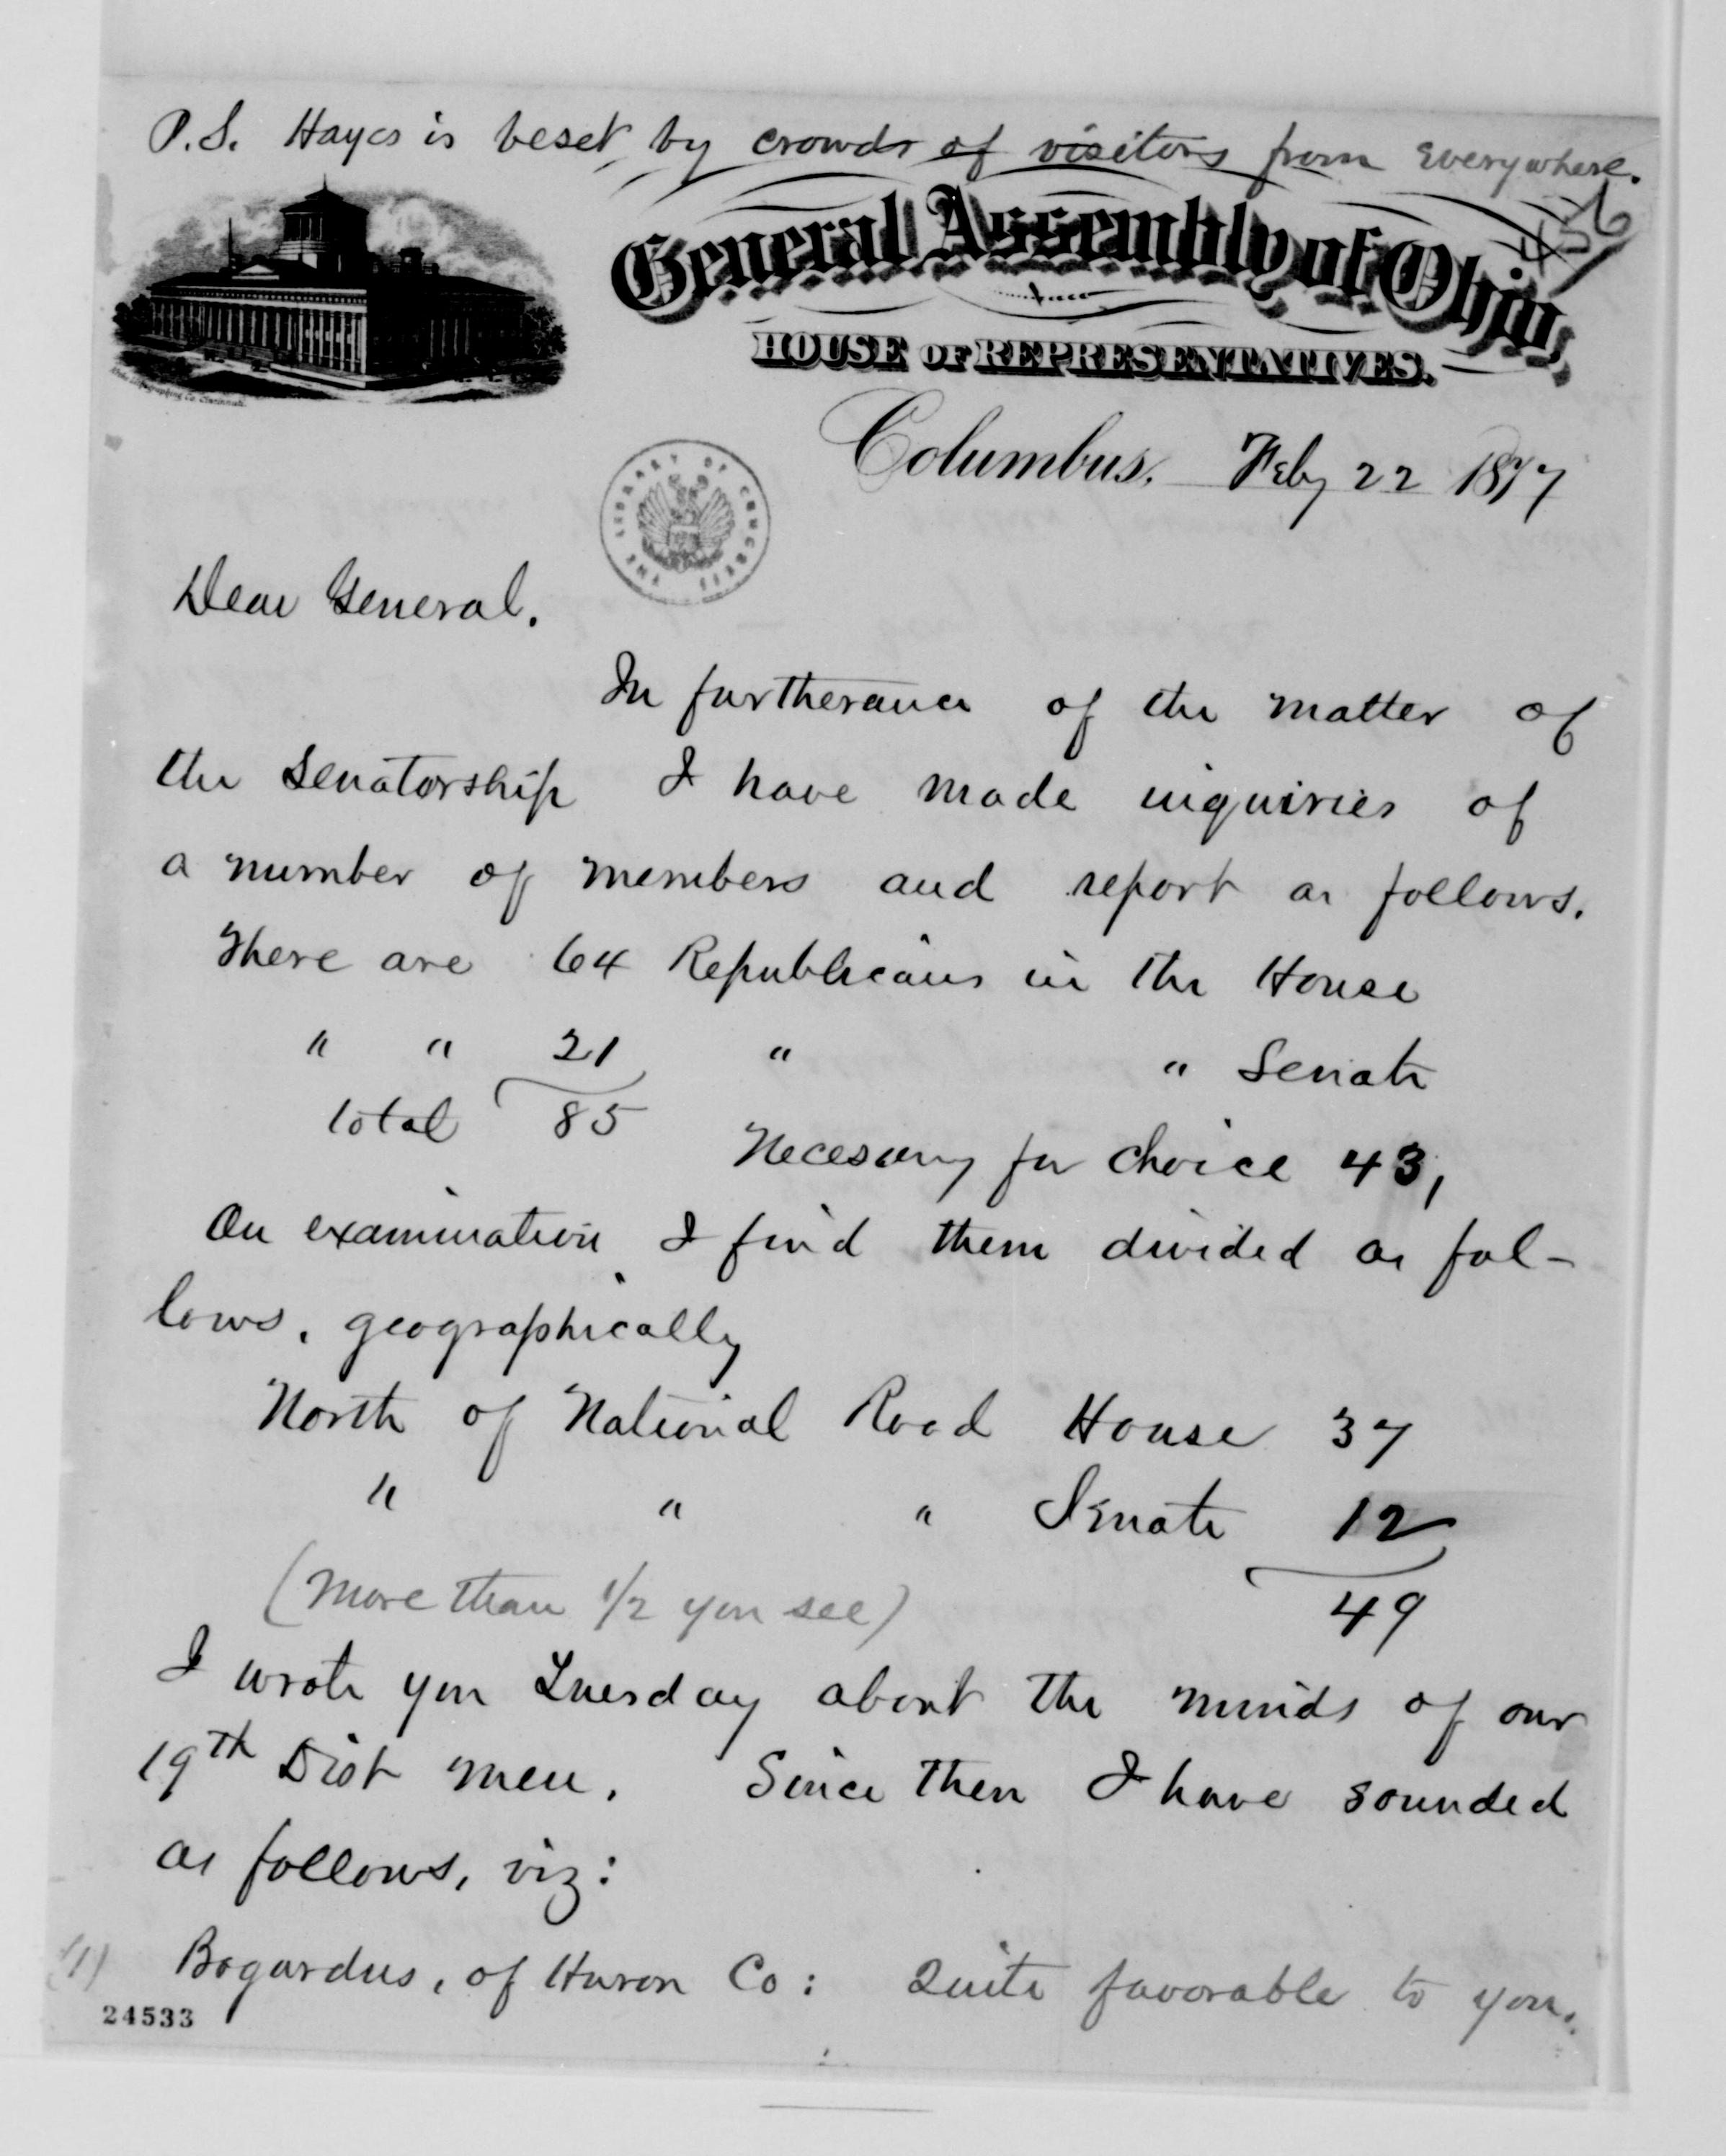 P.S. Hayes is beset by crowds of visitors from everywhere.
456
General Assembly of Ohio,
HOUSE OF REPRESENTATIVES.
Columbus, Feby 22 1877
THE LIBRARY OF CONGRESS
Dear General.
In furtherance of the matter of
the Senatorship I have made inquiries of
a number of members and report as follows.
There are 64 Republicans in the House
" " 21 " " Senate
total 85
Necessary for choice 43,
On examination I find them divided as fol-
lows, geographically
North of National Road House 37
" " " Senate 12
(More than 1/2 you see) 49
I wrote you Tuesday about the minds of our
19th Dist men. Since then I have sounded
as follows, viz:
(1) Bogardus, of Huron Co: Quite favorable to you.
24533